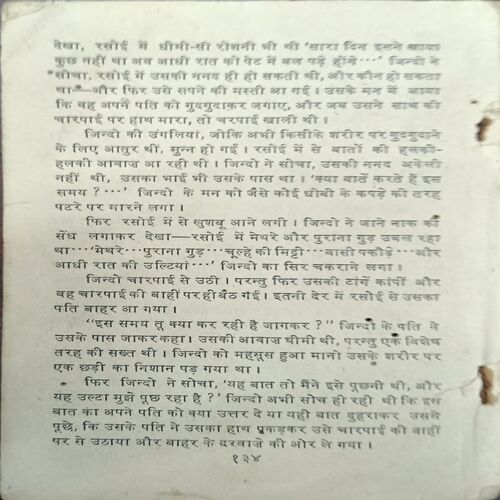 देखा, रसोई में धीमी-सी रौशनी भी थी 'सारा दिन इसने खाया
कुछ नहीं था अब आधी रात को पेट में बल पड़े होंगे···' जिन्दो ने
सोचा, रसोई में उसकी ननद ही हो सकती थी, और कौन हो सकता
था—और फिर उसे सपने की मस्ती आ गई। उसके मन में आया
कि वह अपने पति को गुदगुदाकर जगाए, और जब उसने साथ की
चारपाई पर हाथ मारा, तो चरपाई खाली थी।
जिन्दो की उंगलियां, जोकि अभी किसीके शरीर पर गुदगुदाने
के लिए आतुर थीं, सुन्न हो गईं। रसोई में से बातों की हलकी-
हलकी आवाज़ आ रही थी। जिन्दो ने सोचा, उसकी ननद अकेली
नहीं थी, उसका भाई भी उसके पास था। 'क्या बातें करते हैं इस
समय ?···' जिन्दो के मन को जैसे कोई धोबी के कपड़े की तरह
पटरे पर मारने लगा।
फिर रसोई में से खुशबू आने लगी। जिन्दो ने जाने नाक की
सेंध लगाकर देखा—रसोई में मेथरे और पुराना गुड़ उबल रहा
था···'मेथरे···पुराना गुड़···चूल्हे की मिट्टी···बासी पकौड़े···और
आधी रात की उल्टियां···' जिन्दो का सिर चकराने लगा।
जिन्दो चारपाई से उठी। परन्तु फिर उसकी टांगें कांपीं और
वह चारपाई की बाहीं पर ही बैठ गई। इतनी देर में रसोई से उसका
पति बाहर आ गया।
"इस समय तू क्या कर रही है जागकर ?" जिन्दो के पति ने
उसके पास जाकर कहा। उसकी आवाज़ धीमी थी, परन्तु एक विशेष
तरह की सख्त थी। जिन्दो को महसूस हुआ मानो उसके शरीर पर
एक छड़ी का निशान पड़ गया था।
फिर जिन्दो ने सोचा, 'यह बात तो मैंने इसे पूछनी थी, और
यह उल्टा मुझे पूछ रहा है ?' जिन्दो अभी सोच ही रही थी कि इस
बात का अपने पति को क्या उत्तर दे या यही बात दुहराकर उससे
पूछे, कि उसके पति ने उसका हाथ पकड़कर उसे चारपाई की बाहीं
पर से उठाया और बाहर के दरवाजे की ओर ले गया।
१३४